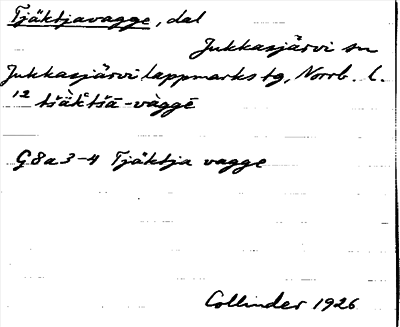 Tjäktjavagge, dal
Jukkasjärvi sn
Jukkasjärvi lappmarks tg, Norrb. l.
12 tšäktšā-vàggē
G8a3-4 Tjäktja vagge
Collinder 1926